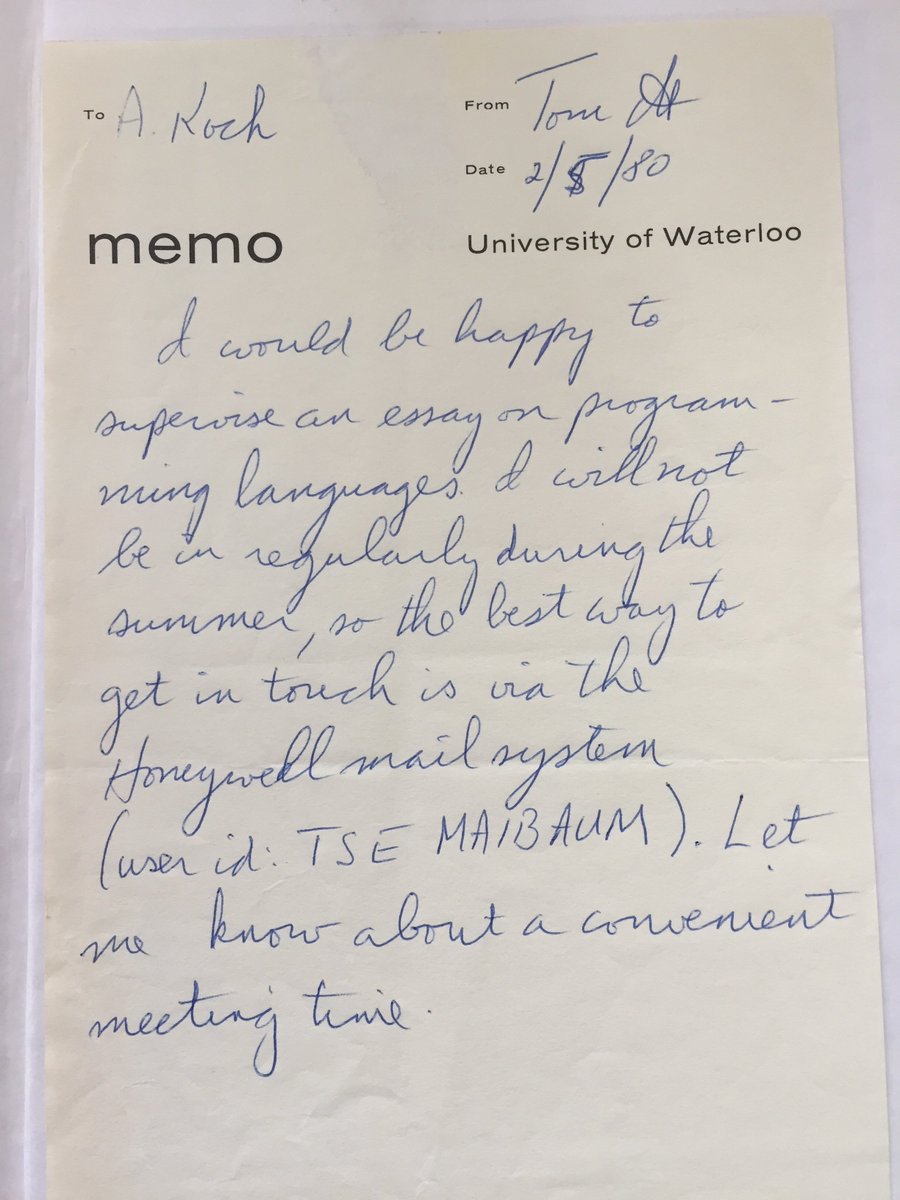 To A. Koch
From Tom
Date 2/5/80
memo
University of Waterloo
I would be happy to
supervise an essay on program-
ming languages. I will not
be in regularly during the
summer, so the best way to
get in touch is via the
Honeywell mail system
(user id: TSE MAIBAUM). Let
me know about a convenient
meeting time.